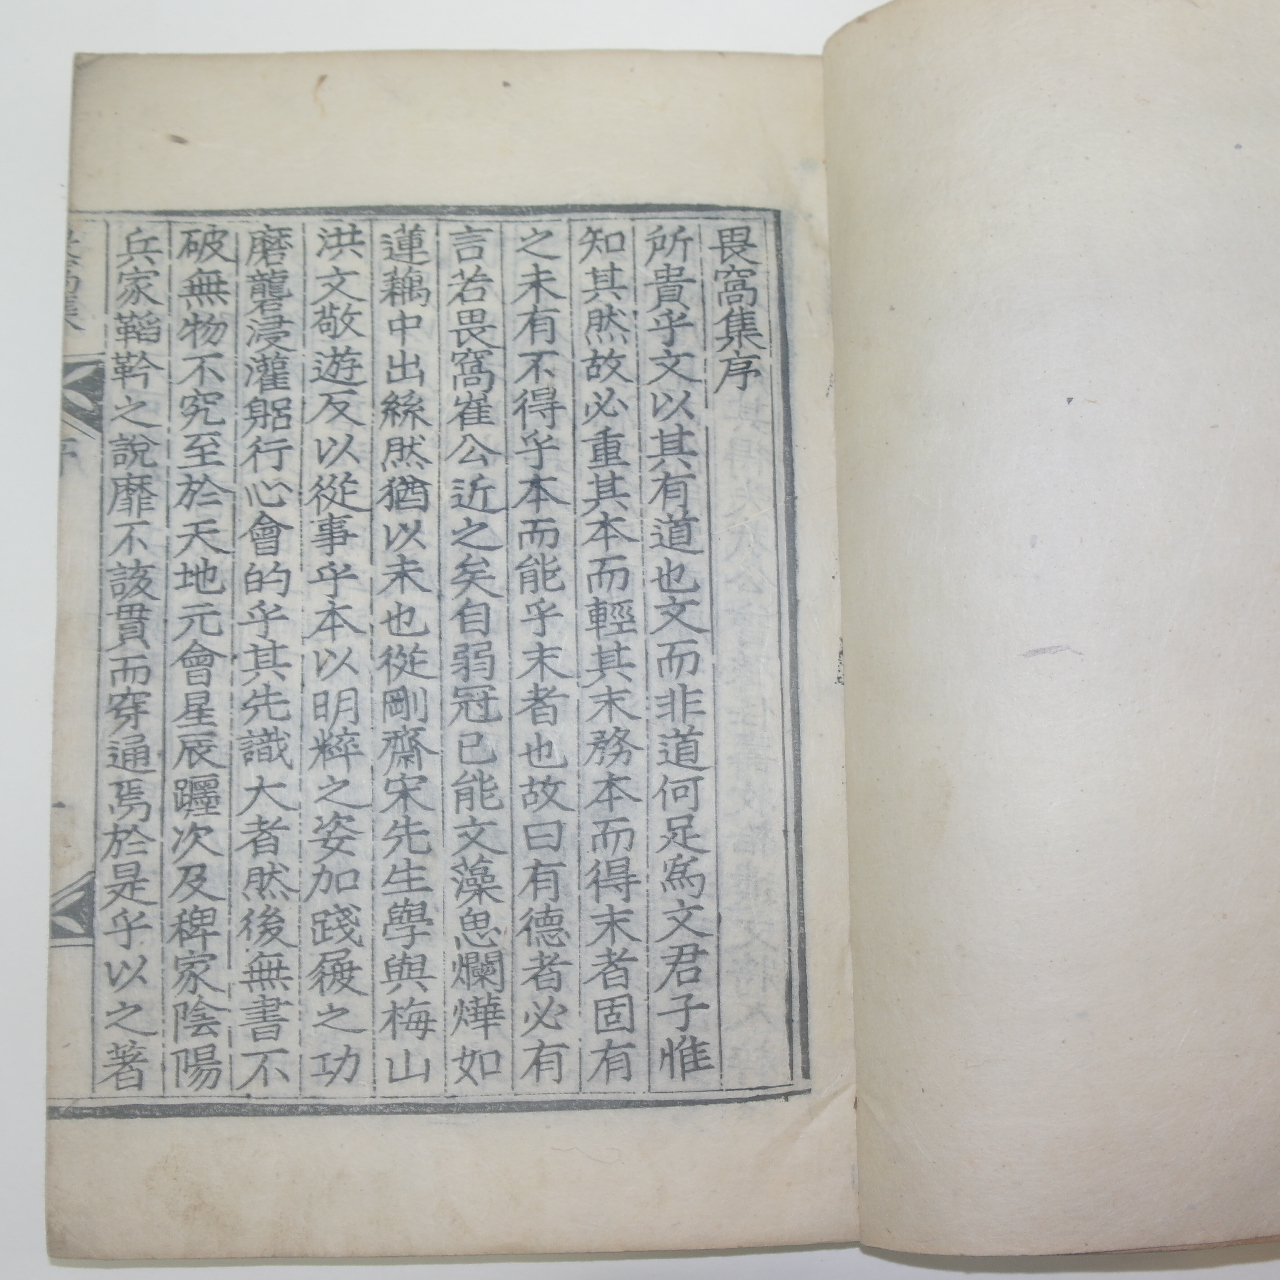 畏窩集序
所貴乎文以其有道也文而非道何足爲文君子惟
知其然故必重其本而輕其末務本而得末者固有
之未有不得乎本而能乎末者也故曰有德者必有
言若畏窩崔公近之矣自弱冠已能文藻思爛燁如
蓮藕中出絲然猶以未也從剛齋宋先生學與梅山
洪文敬遊反以從事乎本以明粹之姿加踐履之功
磨礱浸灌躬行心會的乎其先識大者然後無書不
破無物不究至於天地元會星辰躔次及稗家陰陽
兵家韜鈐之說靡不該貫而穿通焉於是乎以之著
序
一